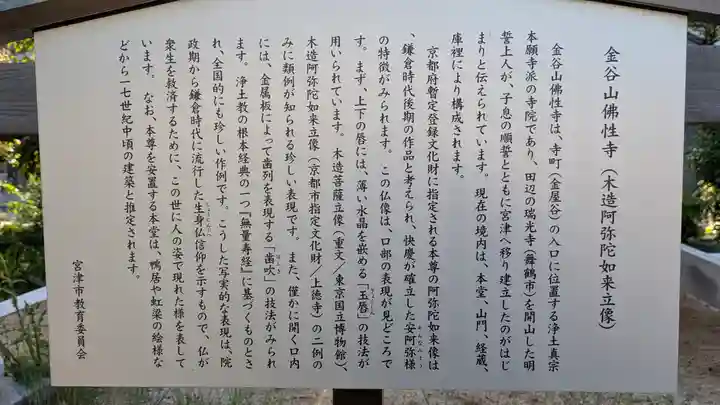 金谷山佛性寺（木造阿弥陀如来立像）
金谷山佛性寺は、寺町（金屋谷）の入口に位置する浄土真宗
本願寺派の寺院であり、田辺の瑞光寺（舞鶴市）を開山した明
誓上人が、子息の順誓とともに宮津へ移り建立したのがはじ
まりと伝えられています。現在の境内は、本堂、山門、経蔵、
庫裡により構成されます。
京都府暫定登録文化財に指定される本尊の阿弥陀如来像は
、鎌倉時代後期の作品と考えられ、快慶が確立した安阿弥様
の特徴がみられます。この仏像は、口部の表現が見どころで
す。まず、上下の唇には、薄い水晶を嵌める「玉唇」の技法が
用いられています。木造菩薩立像（重文／東京国立博物館）、
木造阿弥陀如来立像（京都市指定文化財／上徳寺）の二例の
みに類例が知られる珍しい表現です。また、僅かに開く口内
には、金属板によって歯列を表現する「歯吹」の技法がみられ
ます。浄土教の根本経典の一つ『無量寿経』に基づくものとさ
れ、全国的にも珍しい作例です。こうした写実的な表現は、院
政期から鎌倉時代に流行した生身仏信仰を示すもので、仏が
衆生を救済するために、この世に人の姿で現れた様を表して
います。なお、本尊を安置する本堂は、鴨居や虹梁の絵様な
どから一七世紀中頃の建築と推定されます。
宮津市教育委員会